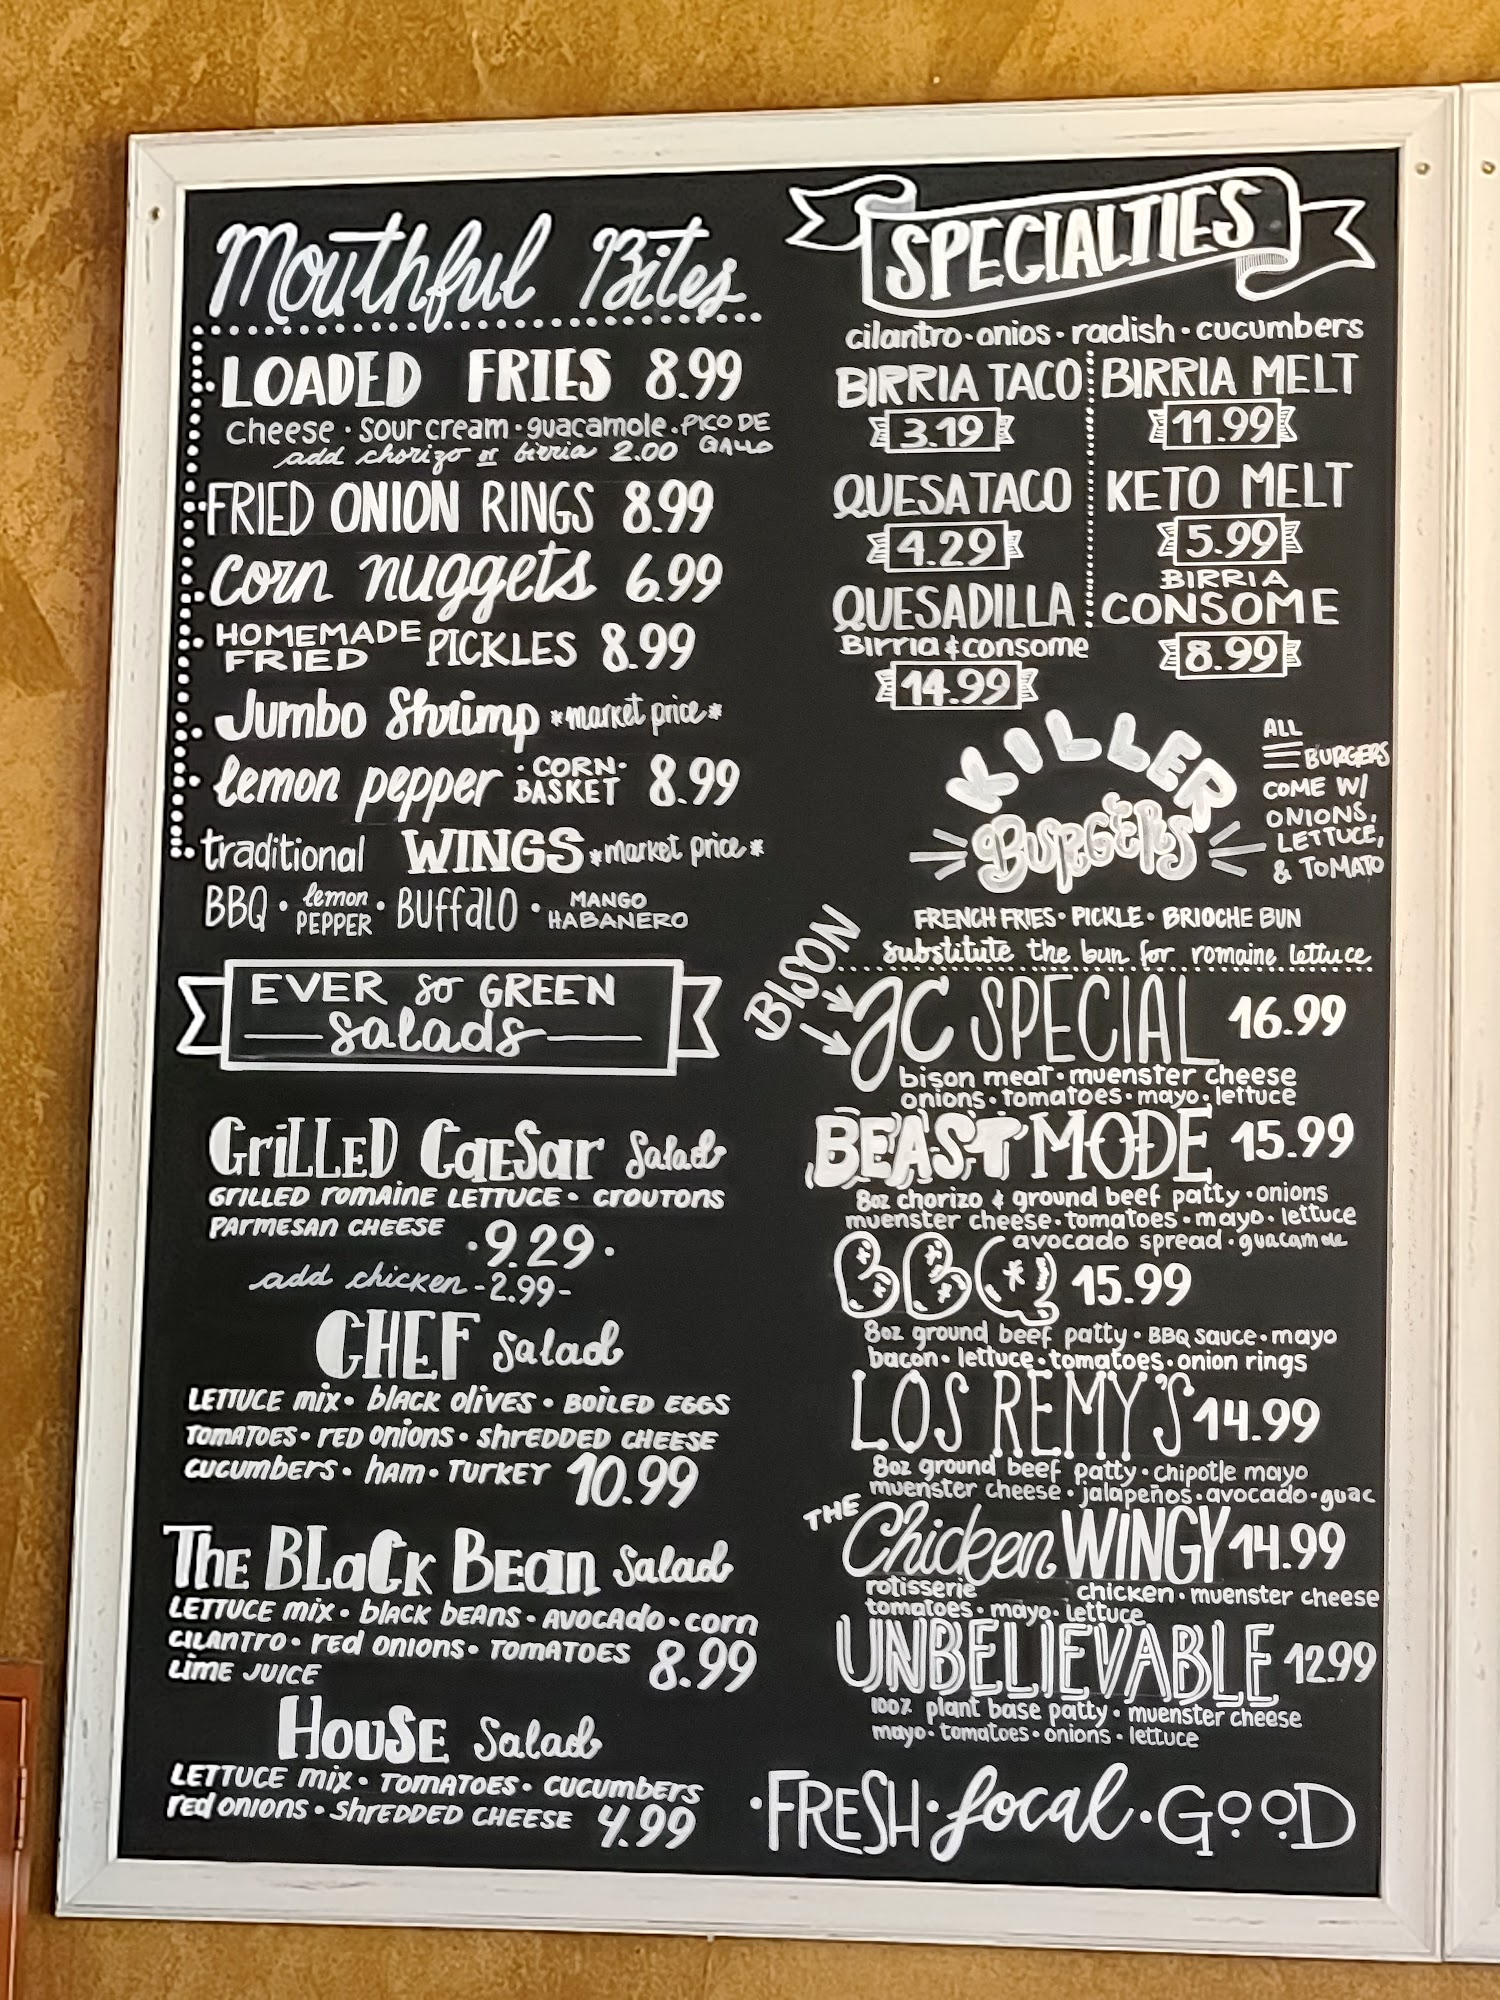 Mouthful Bites
LOADED FRIES 8.99
cheese · sour cream · guacamole · PICO DE GALLO
add chorizo or birria 2.00
FRIED ONION RINGS 8.99
corn nuggets 6.99
HOMEMADE FRIED PICKLES 8.99
Jumbo Shrimp *market price*
lemon pepper · CORN · BASKET 8.99
traditional WINGS *market price*
BBQ · lemon PEPPER · BUFFALO · MANGO HABANERO
EVER so GREEN
salads
GRILLED CAESAR Salad
GRILLED ROMAINE LETTUCE · CROUTONS
PARMESAN CHEESE
· 9.29 ·
add chicken - 2.99 -
CHEF Salad
LETTUCE MIX · BLACK OLIVES · BOILED EGGS
TOMATOES · RED ONIONS · SHREDDED CHEESE
CUCUMBERS · HAM · TURKEY 10.99
THE BLACK BEAN Salad
LETTUCE MIX · BLACK BEANS · AVOCADO · CORN
CILANTRO · RED ONIONS · TOMATOES 8.99
LIME JUICE
HOUSE Salad
LETTUCE MIX · TOMATOES · CUCUMBERS
RED ONIONS · SHREDDED CHEESE 4.99
SPECIALTIES
cilantro · onios · radish · cucumbers
BIRRIA TACO
3.19
QUESATACO
4.29
QUESADILLA
Birria & consome
14.99
BIRRIA MELT
11.99
KETO MELT
5.99
BIRRIA
CONSOME
8.99
KILLER
BURGERS
ALL
BURGERS
COME W/
ONIONS,
LETTUCE,
& TOMATO
FRENCH FRIES · PICKLE · BRIOCHE BUN
substitute the bun for romaine lettuce
BISON
JC SPECIAL 16.99
bison meat · muenster cheese
onions · tomatoes · mayo · lettuce
BEAST MODE 15.99
8oz chorizo & ground beef patty · onions
muenster cheese · tomatoes · mayo · lettuce
avocado spread · guacamole
BBQ 15.99
8oz ground beef patty · BBQ sauce · mayo
bacon · lettuce · tomatoes · onion rings
LOS REMY'S 14.99
8oz ground beef patty · chipotle mayo
muenster cheese · jalapeños · avocado · guac
THE Chicken WINGY 14.99
rotisserie chicken · muenster cheese
tomatoes · mayo · lettuce
UNBELIEVABLE 12.99
100% plant base patty · muenster cheese
mayo · tomatoes · onions · lettuce
· FRESH · local · GOOD